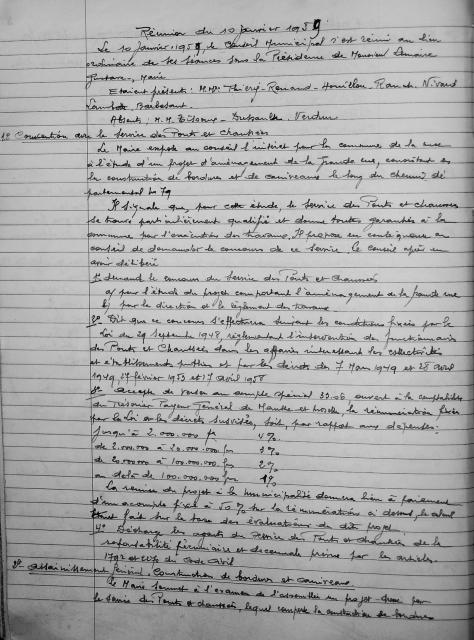 Réunion du 10 janvier 1959
Le 10 janvier 1959, le Conseil Municipal s'est réuni au lieu
ordinaire de ses séances sous la Présidence de Monsieur Lemaire
Gustave, Maire
Etaient présents : M.M. Thiéry - Renard - Houillon - Ranch. Nivard
Lambda Barbesant.
Absents : M.M. Dussaulx - Verdun
1° Convention avec le Service des Ponts et Chaussées
Le Maire expose au conseil l'intérêt pour la commune de la mise
à l'étude d'un projet d'aménagement de la Grande rue, consistant en
la construction de bordures et de caniveaux le long du chemin dé
partemental No 79
Il signale que, pour cette étude, le Service des Ponts et Chaussées
se trouve particulièrement qualifié et donne toutes garanties à la
commune par l'exécution des travaux. Il propose en conséquence au
conseil de demander le concours de ce service. Le conseil après en
avoir délibéré
1° demande le concours du Service des Ponts et chaussées
a/ pour l'étude du projet comportant l'aménagement de la grande rue
b/ par la direction et le règlement des travaux.
2° Dit que ce concours s'effectuera suivant les conditions fixées par la
Loi du 29 septembre 1948, réglementant l'intervention des fonctionnaires
des Ponts et Chaussées dans les affaires intéressant les collectivités
et établissements publics et par les décrets des 7 Mars 1949 et 28 avril
1949, 27 février 1953 et 17 avril 1958
3° accepte de verser au compte spécial 30.06, ouvert à la comptabilité
du Trésorier Payeur Général de la rémunération fixée
par la Loi ou les décrets susvisés, soit, par rapport aux dépenses :
Jusqu'à 2.000.000 fr 4%
de 2.000.000 à 20.000.000 frs 3%
de 20.000.000 à 100.000.000 frs 2%
au delà de 100.000.000 frs 1%
La remise du projet à la municipalité donnera lieu à paiement
d'un acompte fixé à 50% sur la rémunération ci dessus, le calcul
étant fait sur la base des évaluations du dit projet
4° Décharge les agents du Service des Ponts et chaussées de la
responsabilité pécuniaire et décennale prévue par les articles
1792 et 2270 du Code Civil
2° Assainissement Général. Construction de bordures et caniveaux.
Le Maire soumet à l'examen de l'assemblée un projet dressé par
le service des Ponts et chaussées, lequel comporte la construction de bordures